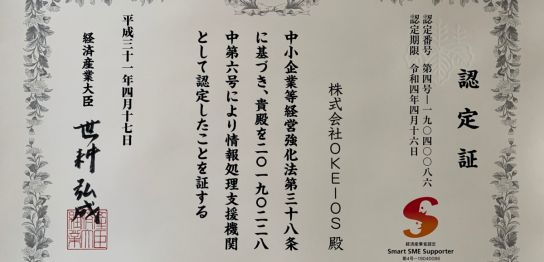 認定証
認定番号 第四号―一九〇四〇〇八六
認定期限 令和四年四月十六日
株式会社OKEIOS 殿
中小企業等経営強化法第三十八条
に基づき、貴殿を二〇一九〇二二八
中第六号により情報処理支援機関
として認定したことを証する
平成三十一年四月十七日
経済産業大臣 世耕弘成
経済産業省認定
Smart SME Supporter
第4号-19040086